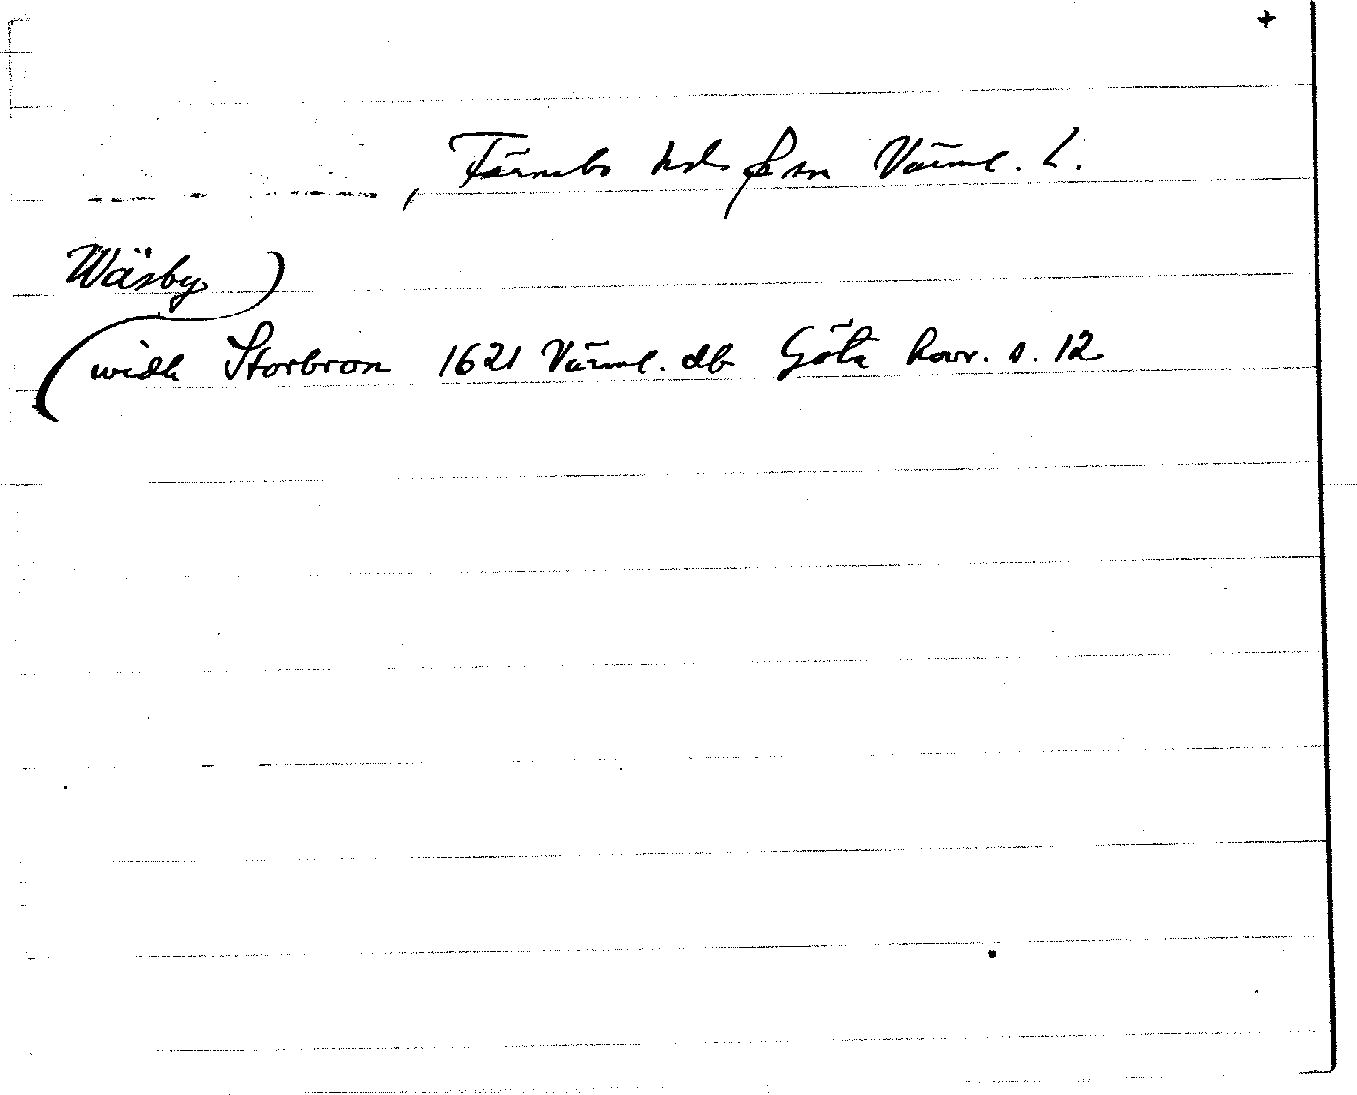 +
, Färnebo hd o sn Värml. L.
Wäsby )
( widh Storbron 1621 Värml. db Göta hovr. s. 12